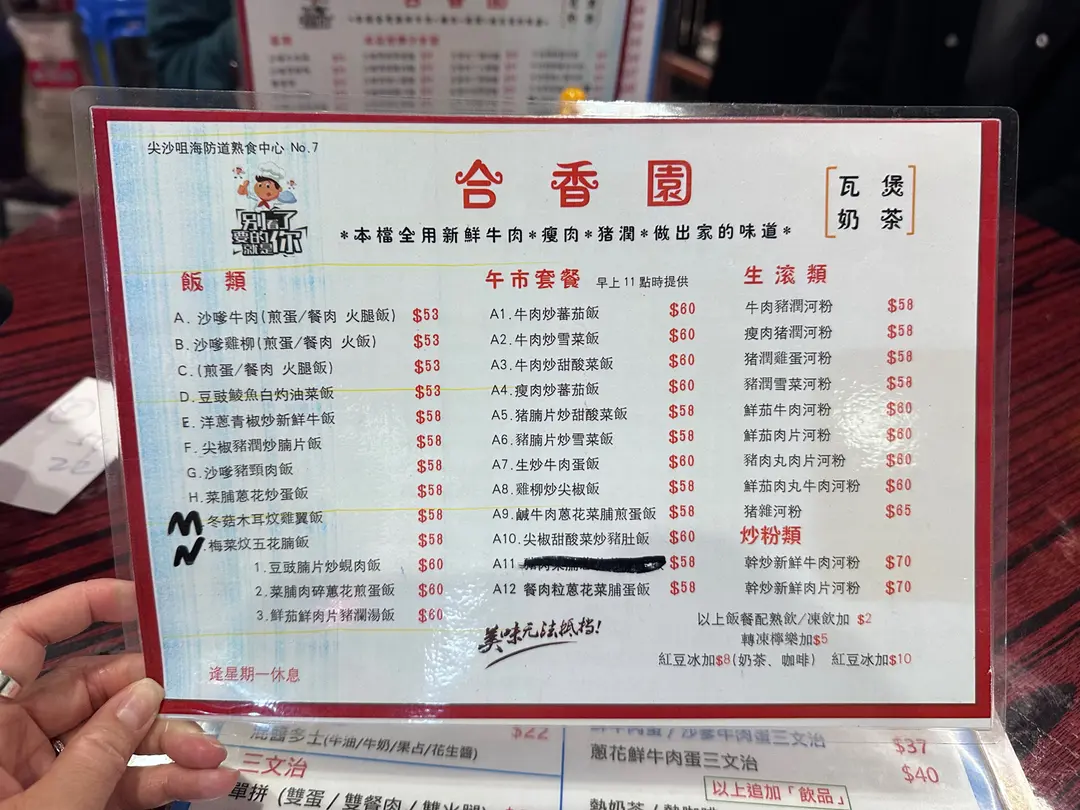 尖沙咀海防道熟食中心 No.7
別看了
要的
就是你
合香園
瓦煲
奶茶
*本檔全用新鮮牛肉*瘦肉*猪潤*做出家的味道*
飯類
A. 沙嗲牛肉(煎蛋/餐肉 火腿飯) $53
B. 沙嗲雞柳(煎蛋/餐肉 火飯) $53
C. (煎蛋/餐肉 火腿飯) $53
D. 豆豉鯪魚白灼油菜飯 $53
E. 洋蔥青椒炒新鮮牛飯 $58
F. 尖椒豬潤炒腩片飯 $58
G. 沙嗲豬頸肉飯 $58
H. 菜脯蔥花炒蛋飯 $58
M.冬菇木耳炆雞翼飯 $58
N.梅菜炆五花腩飯 $58
1. 豆豉腩片炒蜆肉飯 $60
2. 菜脯肉碎蔥花煎蛋飯 $60
3. 鮮茄鮮肉片豬瀾湯飯 $60
逢星期一休息
午市套餐 早上11點時提供
A1.牛肉炒蕃茄飯 $60
A2.牛肉炒雪菜飯 $60
A3.牛肉炒甜酸菜飯 $60
A4.瘦肉炒蕃茄飯 $60
A5.猪腩片炒甜酸菜飯 $58
A6.豬腩片炒雪菜飯 $58
A7.生炒牛肉蛋飯 $60
A8.雞柳炒尖椒飯 $58
A9.鹹牛肉蔥花菜脯煎蛋飯 $58
A10.尖椒甜酸菜炒豬肚飯 $60
A11 $58
A12 餐肉粒蔥花菜脯蛋飯 $58
美味无法抵挡!
生滚類
牛肉豬潤河粉 $58
瘦肉猪潤河粉 $58
猪潤雞蛋河粉 $58
豬潤雪菜河粉 $58
鮮茄牛肉河粉 $60
鮮茄肉片河粉 $60
豬肉丸肉片河粉 $60
鮮茄肉丸牛肉河粉 $60
猪雜河粉 $65
炒粉類
幹炒新鮮牛河粉 $70
幹炒新鮮肉片河粉 $70
以上飯餐配熱飲/凍飲加 $2
轉凍檸樂加$5
紅豆冰加$8(奶茶、咖啡) 紅豆冰加$10
多士(牛油/牛奶/果占/花生醬) $22
三文治
單拼 (雙蛋/雙餐肉/雙火腿)
$37
蔥花鮮牛肉蛋三文治 $40
以上追加「飲品」